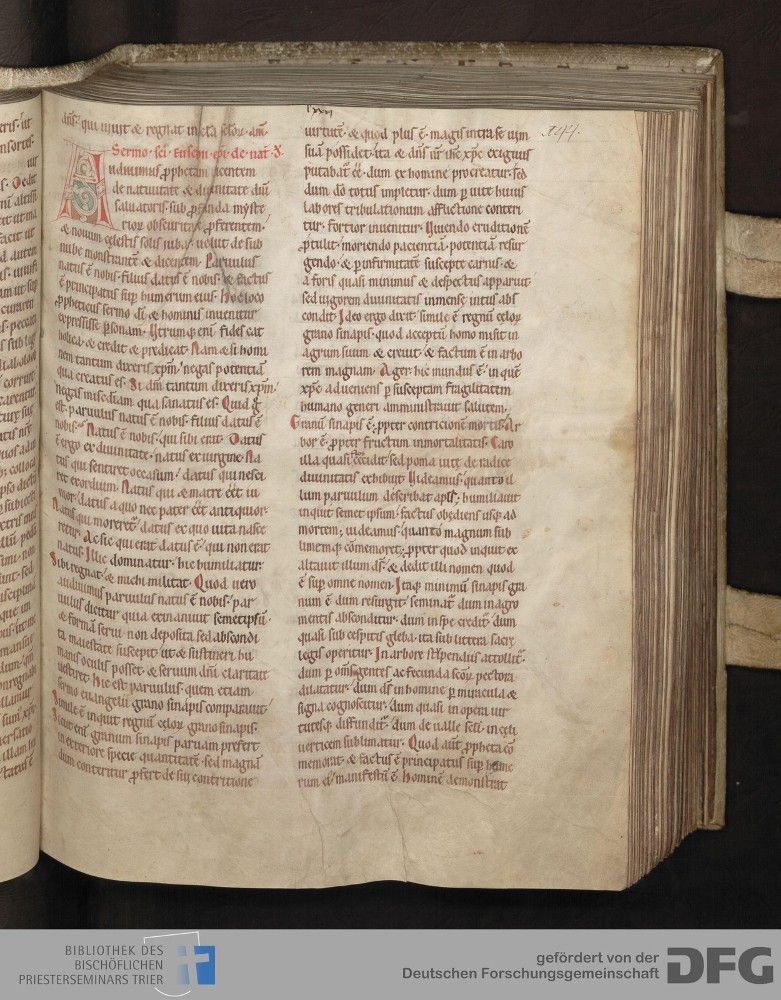 dn̄s. qui uiuit & regnat in scła scłor. am̄.
Sermo. sc̄i. eusebii. ep̄i. de. nat̄. d.
Audiuimus ꝓphetam dicentem
de natiuitate & diuinitate dn̄i
saluatoris. sub ꝓfunda myste
rior obscuritate ꝓferentem.
& nouum cęlestis solis iubar. uelut de sub
nube monstrantē & dicentem. Paruulus
natus ē nobis. filius datus ē nobis. & factus
ē principatus sup̄ humerum eius. Hoc loco
ꝓpheticus sermo dī & hominis inuenitur
expressisse ꝑsonam. Utrumq; enī fides cat
holica. & credit & predicat. Nam & si homi
nem tantum dixeris xp̄m. negas potentiā
qua creatus es. Si dm̄ tantum dixeris xp̄m.
negas misc̄diam. qua sanatus es. Quid g̊
est. paruulus natus ē nobis. filius datus ē
nobis. Natus ē nobis. qui sibi erat. Datus
ē ergo ex diuinitate. natus ex uirgine. Na
tus qui sentiret occasum. datus qui nesci
ret exordium. Natus qui & matre eēt iu
nior. datus a quo nec pater eēt antiquior.
Natus qui moreret̄. datus ex quo uita nasce
retur. Ac sic qui erat datus ē. qui non erat
natus. Illic dominatur. hic humiliatur.
Sibi regnat. & michi militat. Quod uero
audiuimus paruulus natus ē nobis. par
uulus dicitur quia exinaniuit semetipsū.
& formā serui non deposita sed abscondi
ta maiestate suscepit. ut & sustineri hu
manis oculis posset. & seruum dn̄i claritate
uestiret. Hic est paruulus. quem etiam
sermo euangelii grano sinapis comparauit.
Simile ē inquit regnū cęlor. grano sinapis.
Sicut enī granum sinapis paruam prefert
in exteriore specie quantitatē. sed magnā
dum conteritur ꝓfert de sui contritione
lxvii
144.
uirtutē. & quod plus ē. magis intra se uim
suā possidet. ita & dn̄s nr̄ ihc xp̄c exiguus
putabat̄ eē. dum ex homine procreatur. sed
dum dō totus impletur. dum ꝑ uitę huius
labores tribulationum afflictione conteri
tur. fortior inuenitur. Uiuendo eruditionē
ꝓtulit. moriendo pacientiā. potentiā resur
gendo. & ꝑ infirmitatē susceptę carnis. &
a foris quasi minimus & despectus apparuit.
sed uigorem diuinitatis inmensę intus abs
condit. Ideo ergo dixit. simile ē regnū cęlor
grano sinapis. quod acceptū homo misit in
agrum suum & creuit. & factum ē in arbo
rem magnam. Ager. hic mundus ē. in quē
xp̄c adueniens ꝑ susceptam fragilitatem
humano generi amministrauit salutem.
Granū sinapis ē. ꝓpter contricionē mortis. Ar
bor ē. ꝓpter fructum inmortalitatis. Caro
illa quasi occidit. sed poma uitę de radice
diuinitatis exhibuit. Uideamus quanto il
lum paruulum describat apl̄s. humiliauit
inquit semet ipsum. factus obediens usq; ad
mortem. uideamus quanto magnum sub
limemq; cōmemoret. ꝓpter quod inquit ex
altauit illum ds̄. & dedit illi nomen quod
ē sup̄ omne nomen. Itaq; minimū sinapis gra
num ē dum resurgit. seminat̄ dum in agro
mentis absconditur. dum in spe credit̄. dum
quasi sub cespitis gleba. ita sub littera sacrę
legis operitur. In arborē stipendiis attollit̄.
dum ꝑ om̄s gentes ac fecunda scōr pectora
dilatatur. dum ds̄ in homine ꝑ miracula &
signa cognoscitur. dum quasi in opera uir
tutesq; diffundit̄. dum de ualle scłi. in cęli
uerticem sublimatur. Quod aūt ꝓpheta cō
memorat. & factus ē principatus sup̄ hume
rum ei. manifestū ē hominē demonstrat
BIBLIOTHEK DES
BISCHÖFLICHEN
PRIESTERSEMINARS TRIER
gefördert von der
Deutschen Forschungsgemeinschaft
DFG